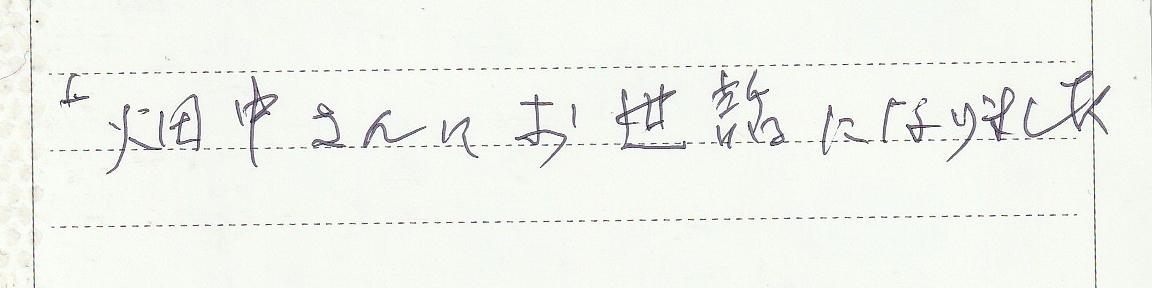 「畑中さんにお世話になりました